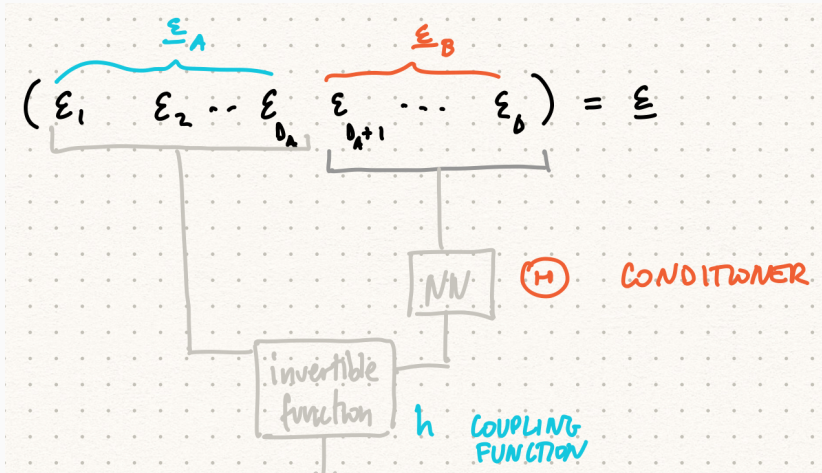 ε_A ε_B
( ε₁ ε₂ .. ε_{D_A} ε_{D_A+1} ... ε_D ) = ε
NN Θ CONDITIONER
invertible
function
h COUPLING
FUNCTION